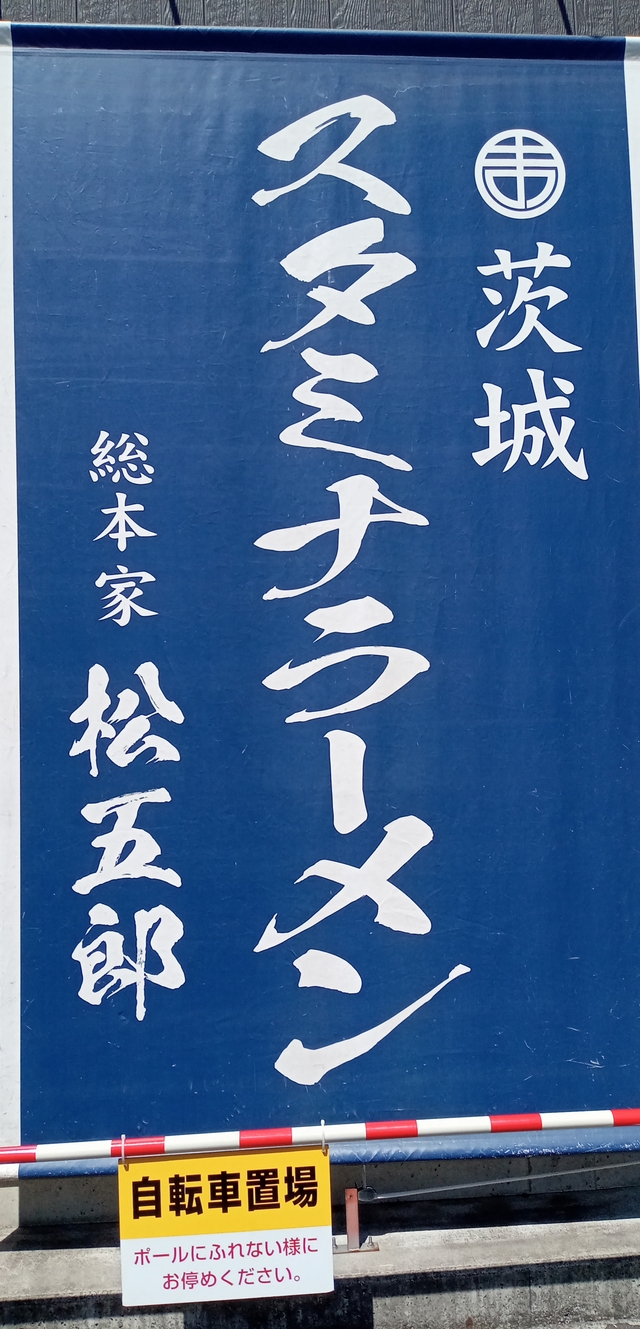 茨城
スタミナラーメン
総本家 松五郎
自転車置場
ポールにふれない様に
お停めください。